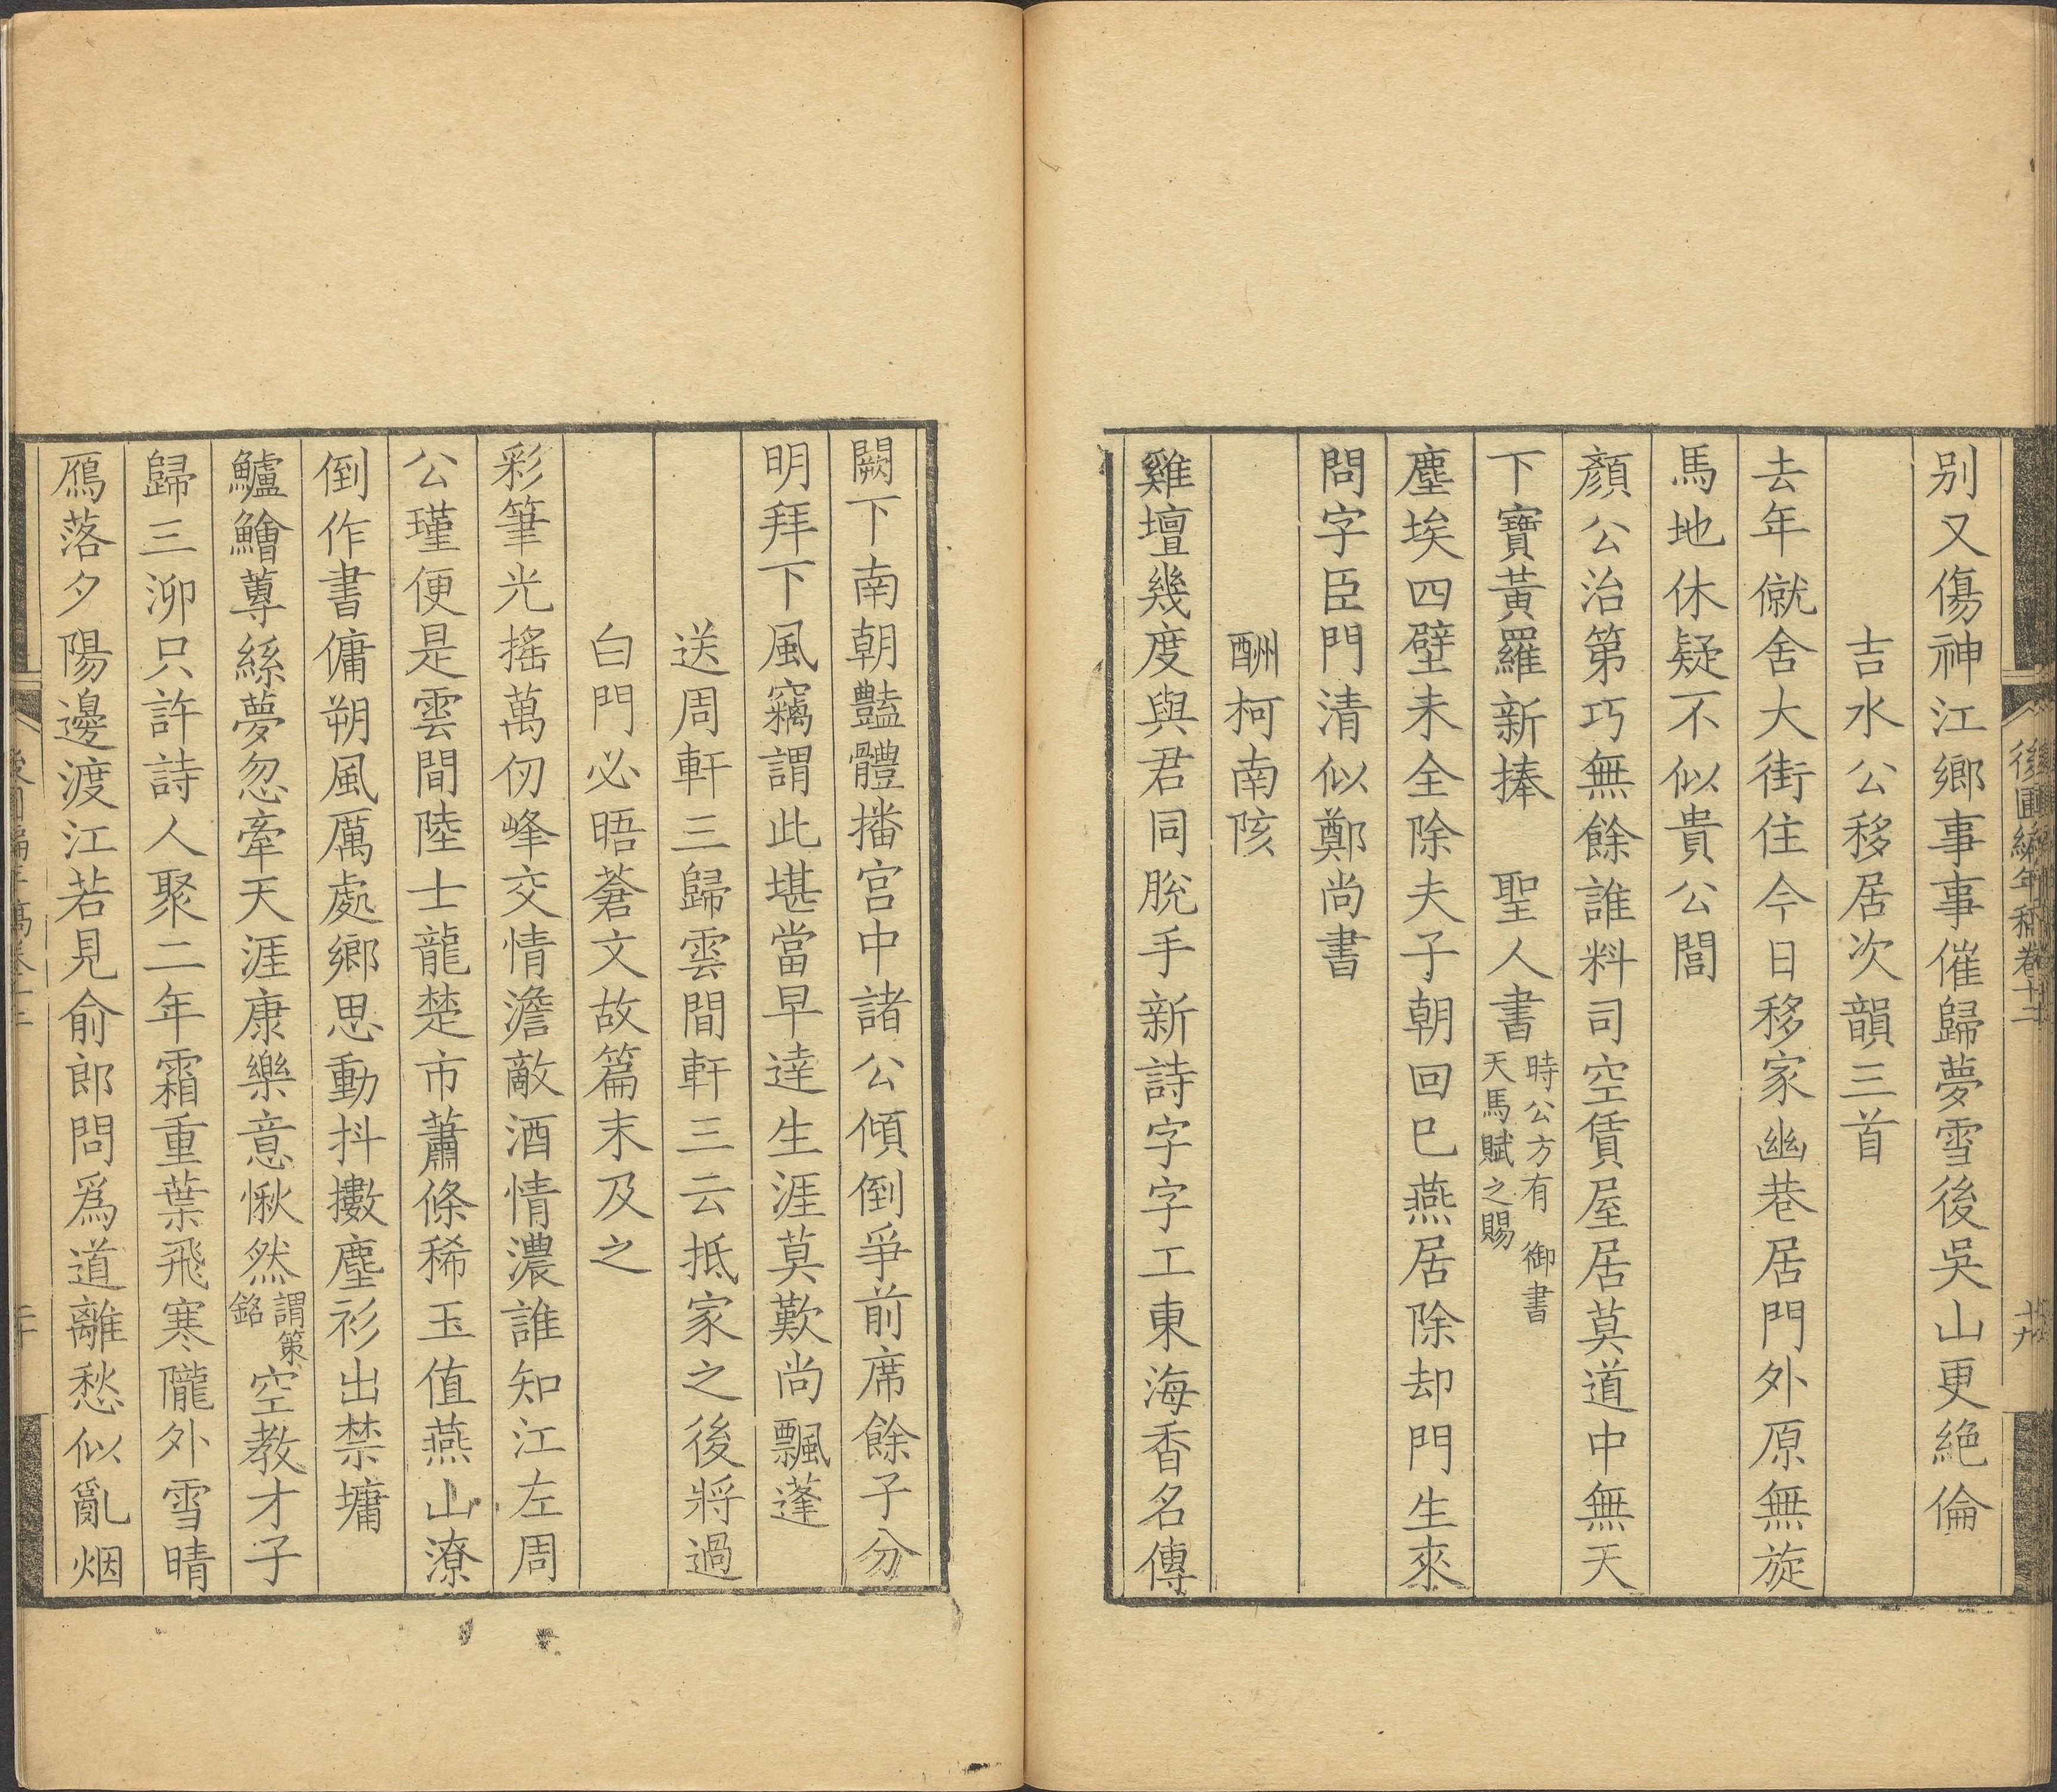 後圃編年稿卷十二
十九
別又傷神江鄉事事催歸夢雪後吳山更絕倫
吉水公移居次韻三首
去年僦舍大街住今日移家幽巷居門外原無旋
馬地休疑不似貴公閭
顏公治第巧無餘誰料司空賃屋居莫道中無天
下寶黃羅新捧 聖人書時公方有 御書天馬賦之賜
塵埃四壁未全除夫子朝回巳燕居除却門生來
問字臣門清似鄭尚書
酬柯南陔
雞壇幾度與君同脫手新詩字字工東海香名傳
闕下南朝豔體播宮中諸公傾倒爭前席餘子分
明拜下風竊謂此堪當早達生涯莫歎尚飄蓬
送周軒三歸雲間軒三云抵家之後將過
白門必晤蒼文故篇末及之
彩筆光搖萬仞峰交情澹敵酒情濃誰知江左周
公瑾便是雲間陸士龍楚市蕭條稀玉值燕山潦
倒作書傭朔風厲處鄉思動抖擻塵衫出禁墉
鱸鱠蓴絲夢忽牽天涯康樂意愀然謂策銘空教才子
歸三泖只許詩人聚二年霜重葉飛寒隴外雪晴
鴈落夕陽邊渡江若見俞郎問爲道離愁似亂烟